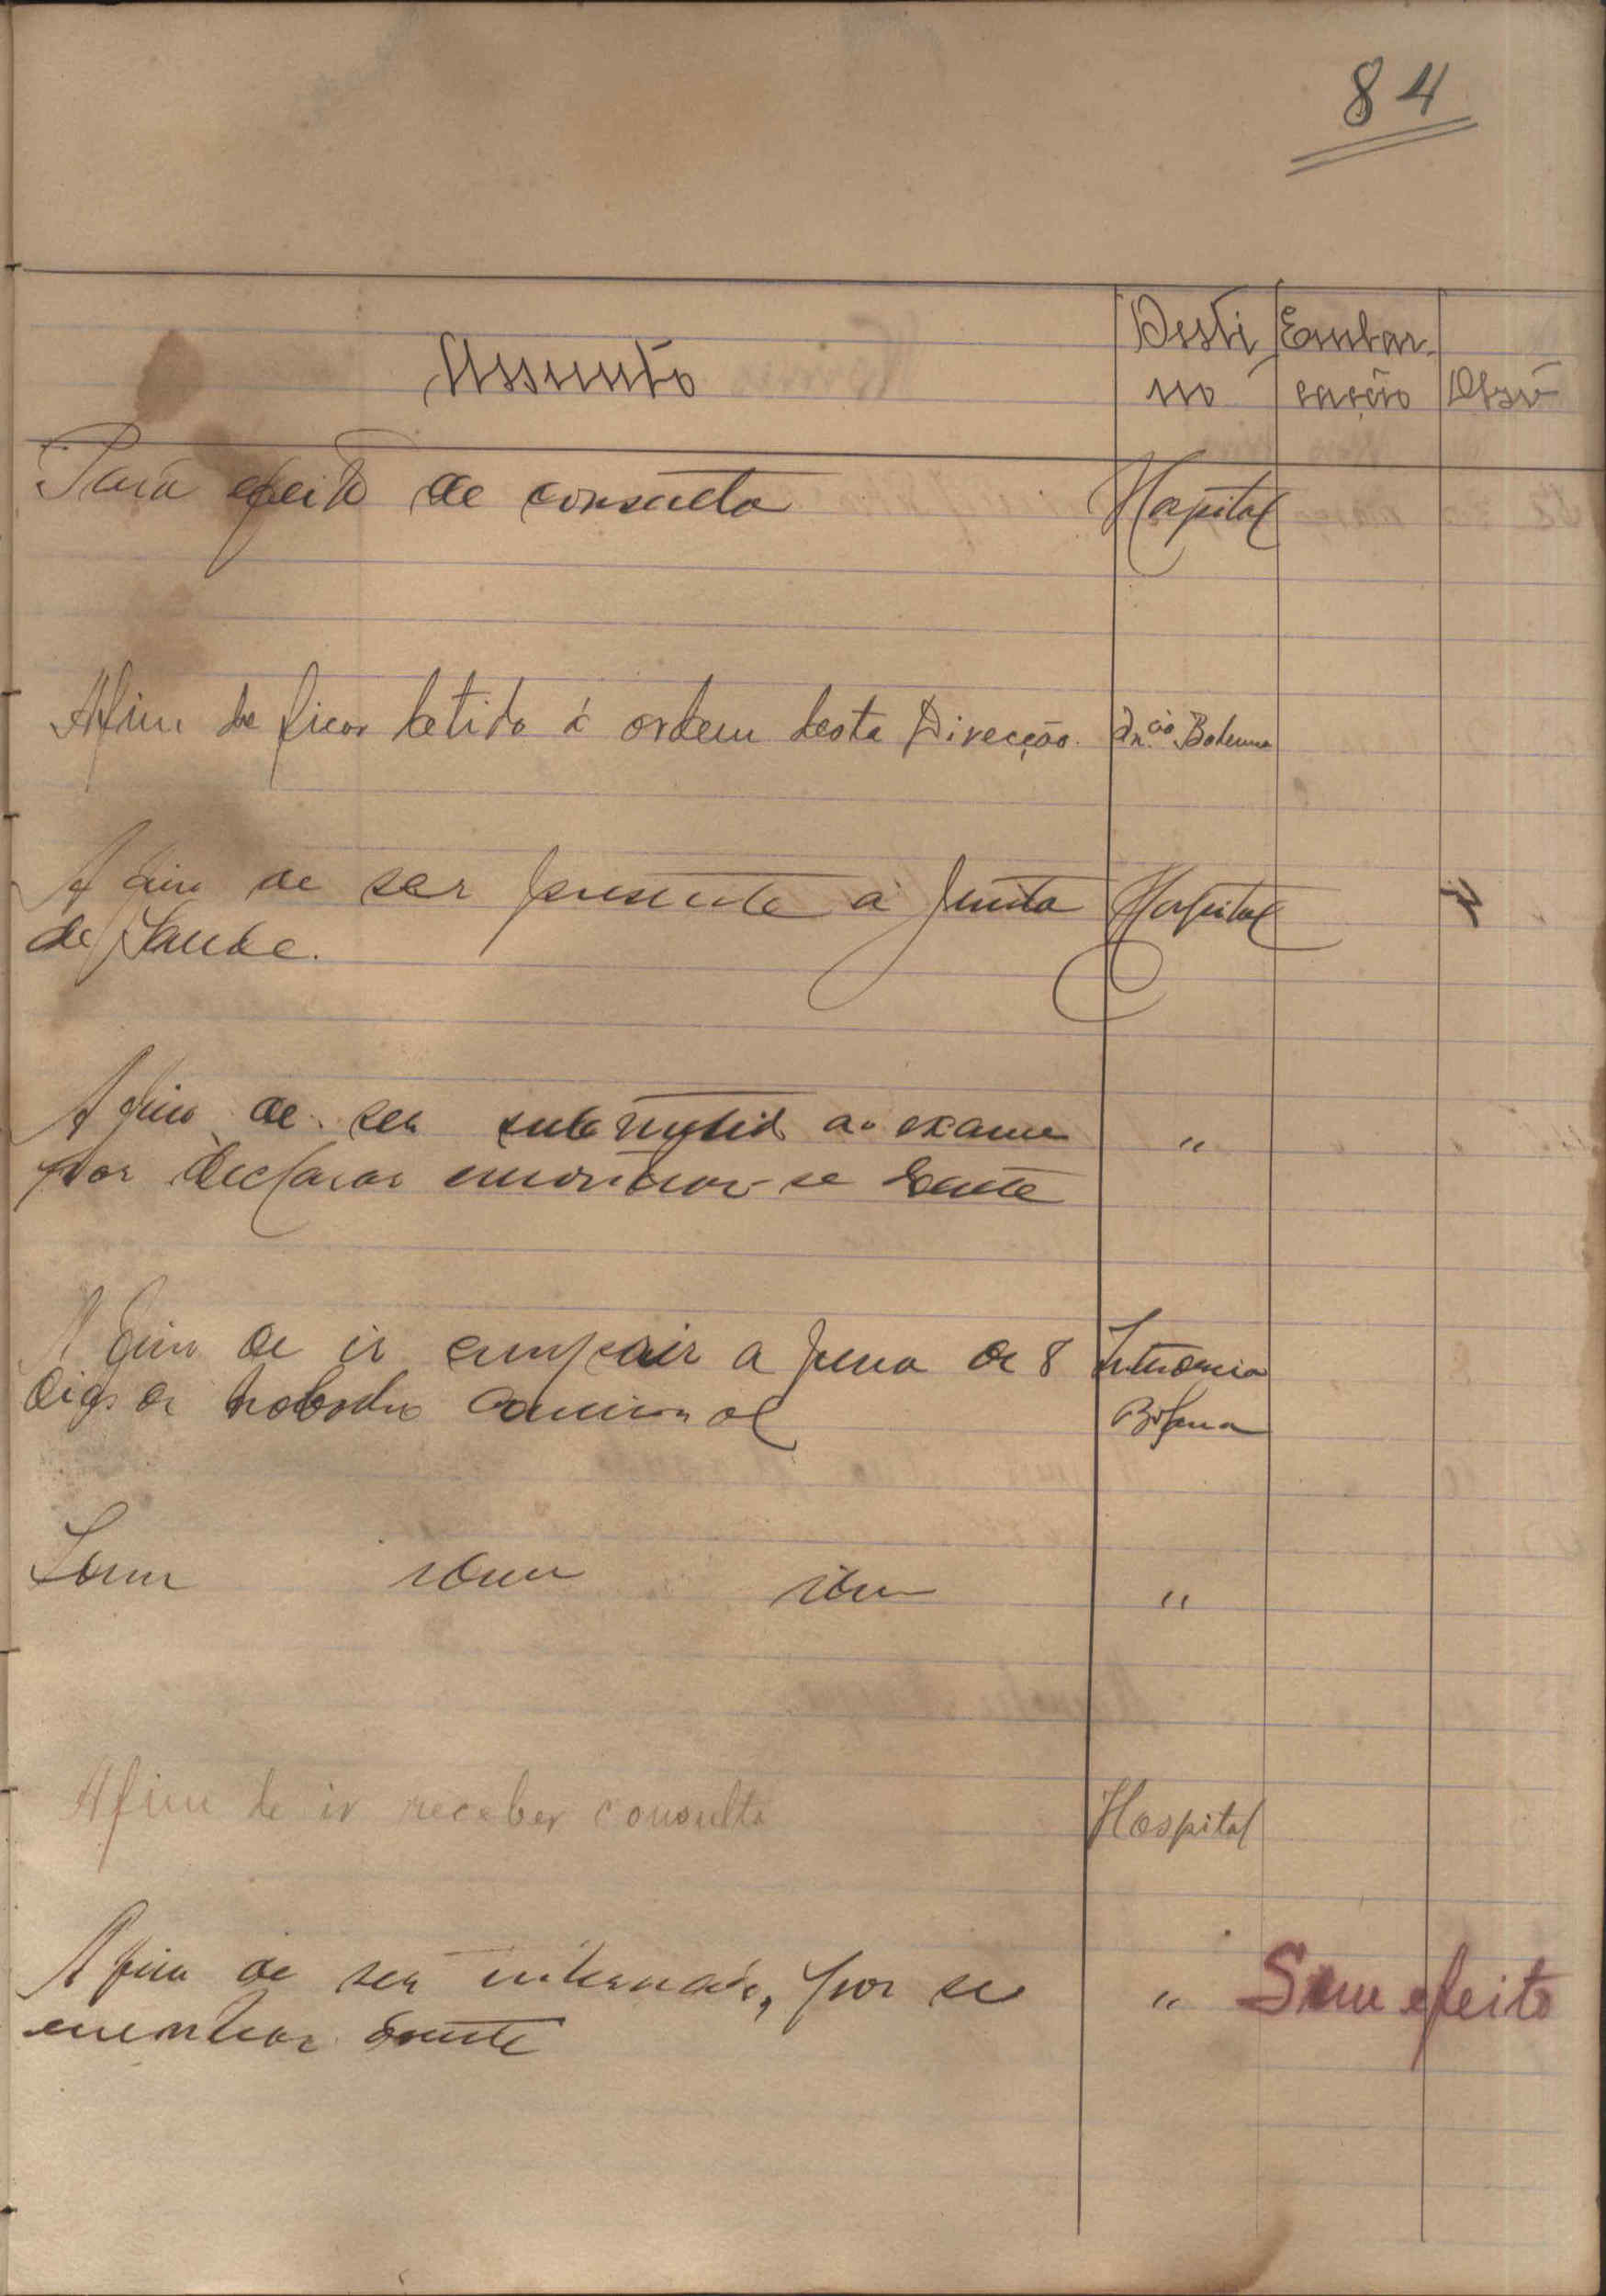 84
Assunto
Desti
no
Embar-
cação
Obsv
Para efeito de consulta Hospital
Afim de ficar detido á ordem desta Direcção. In.cia Bolama
A fim de ser presente a Junta Hospital
de Saude.
A fim de ser submetid ao exame "
por declarar encontrar-se doente
A fim de ir cumprir a pena de 8 Intendencia
dias de trabalho correcional Bolama
Idem idem idem "
Afim de ir receber consulta Hospital
A fim de ser internado, por se " Sem efeito
encontrar doente